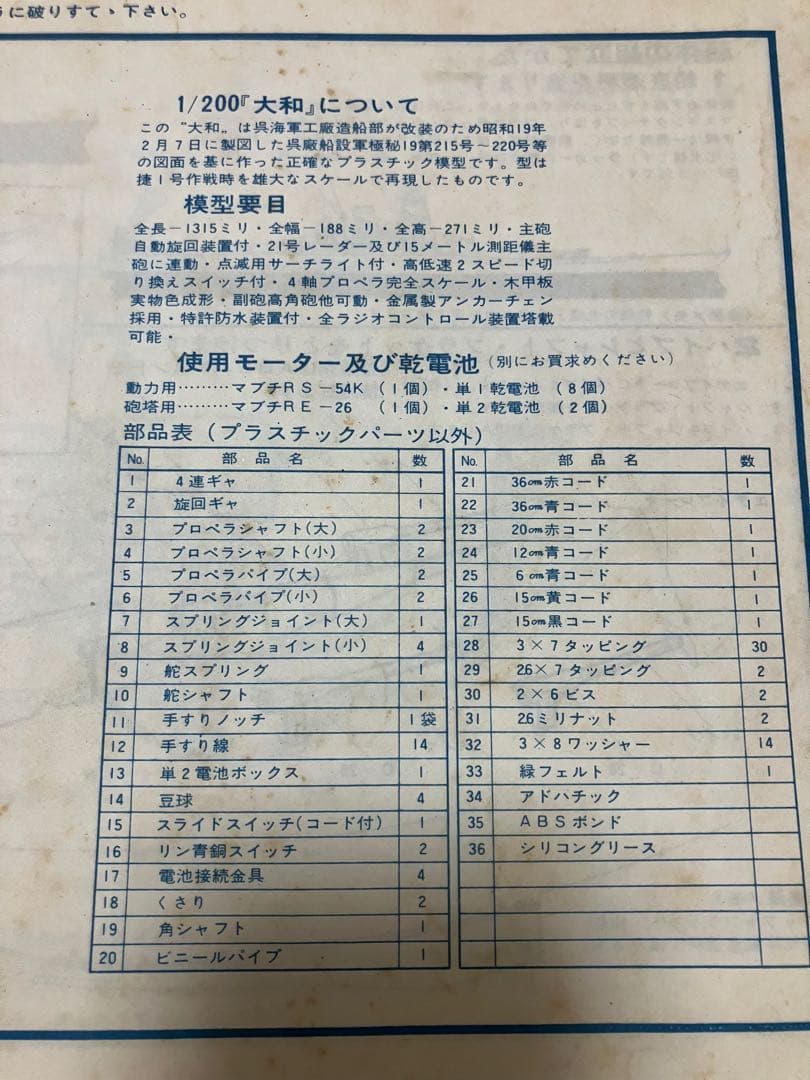 に破りすてゝ下さい。
1/200『大和』について
この〝大和〟は呉海軍工廠造船部が改装のため昭和19年
2月7日に製図した呉廠船設軍極秘19第215号～220号等
の図面を基に作った正確なプラスチック模型です。型は
捷1号作戦時を雄大なスケールで再現したものです。
模型要目
全長－1315ミリ・全幅－188ミリ・全高－271ミリ・主砲
自動旋回装置付・21号レーダー及び15メートル測距儀主
砲に連動・点滅用サーチライト付・高低速2スピード切
り換えスイッチ付・4軸プロペラ完全スケール・木甲板
実物色成形・副砲高角砲他可動・金属製アンカーチェン
採用・特許防水装置付・全ラジオコントロール装置塔載
可能・
使用モーター及び乾電池（別にお買求めください）
動力用………マブチRS－54K（1個）・単1乾電池（8個）
砲塔用………マブチRE－26（1個）・単2乾電池（2個）
部品表（プラスチックパーツ以外）
No. 部品名 数
1 4連ギャ 1
2 旋回ギャ 1
3 プロペラシャフト(大) 2
4 プロペラシャフト(小) 2
5 プロペラパイプ(大) 2
6 プロペラパイプ(小) 2
7 スプリングジョイント(大) 1
8 スプリングジョイント(小) 4
9 舵スプリング 1
10 舵シャフト 1
11 手すりノッチ 1袋
12 手すり線 14
13 単2電池ボックス 1
14 豆球 4
15 スライドスイッチ(コード付) 1
16 リン青銅スイッチ 2
17 電池接続金具 4
18 くさり 2
19 角シャフト 1
20 ビニールパイプ 1
No. 部品名 数
21 36cm赤コード 1
22 36cm青コード 1
23 20cm赤コード 1
24 12cm青コード 1
25 6cm青コード 1
26 15cm黄コード 1
27 15cm黒コード 1
28 3×7タッピング 30
29 2.6×7タッピング 2
30 2×6ビス 2
31 2.6ミリナット 2
32 3×8ワッシャー 14
33 緑フェルト 1
34 アドハチック
35 ABSボンド
36 シリコングリース